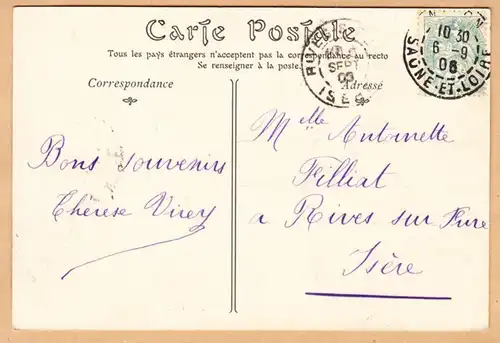 Carte Postale
Tous les pays étrangers n'acceptent pas la correspondance au recto
Se renseigner à la poste.
Correspondance
Adresse
RIVES
SEPT
ISÈRE
10 30
6 - 9
06
SAÔNE-ET-LOIRE
Bons souvenirs
Thérèse Virey
Mlle Antoinette
Filliat
a Rives sur Fure
Isère